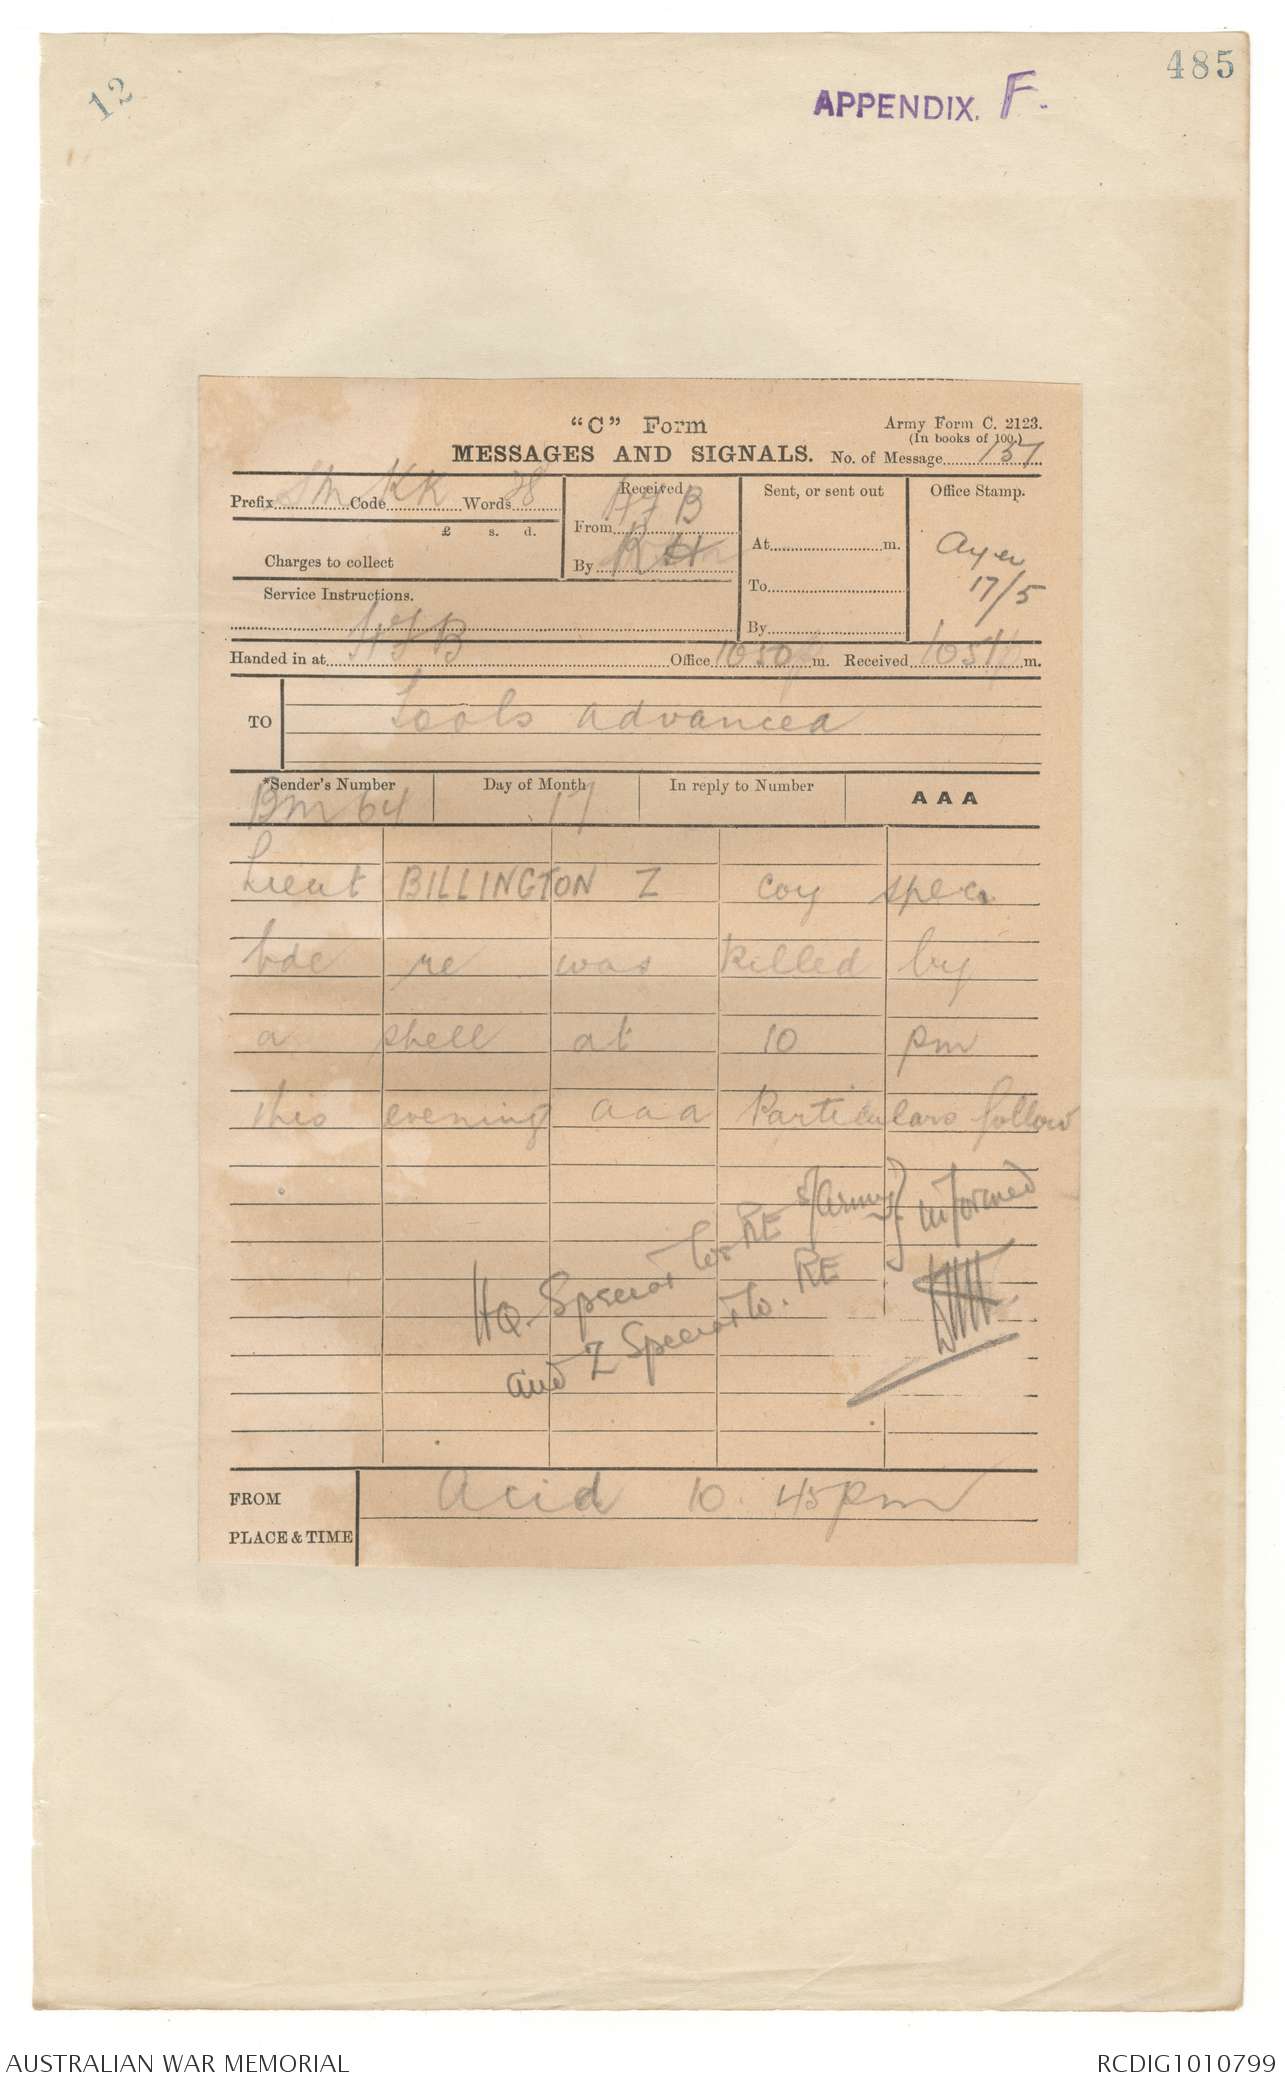 485
12
APPENDIX. F.
"C" Form
Army Form C. 2123.
(In books of 100.)
MESSAGES AND SIGNALS.
No. of Message 137
Prefix SM Code KK Words 28
Received
From HJB
By
Sent, or sent out
At m.
To
By
Office Stamp.
17/5
£ s. d.
Charges to collect
Service Instructions.
HJB
Handed in at Office 1050p m. Received 1051p m.
TO Tools advanced
*Sender's Number Day of Month In reply to Number AAA
BM 64 17
Lieut BILLINGTON Z coy spec
bde re was killed by
a shell at 10 pm
this evening aaa Particulars follow
HQ. Special Cos RE 5/Army } informed
and Z Special Co. RE
FROM Acid 10.45pm
PLACE & TIME
AUSTRALIAN WAR MEMORIAL
RCDIG1010799